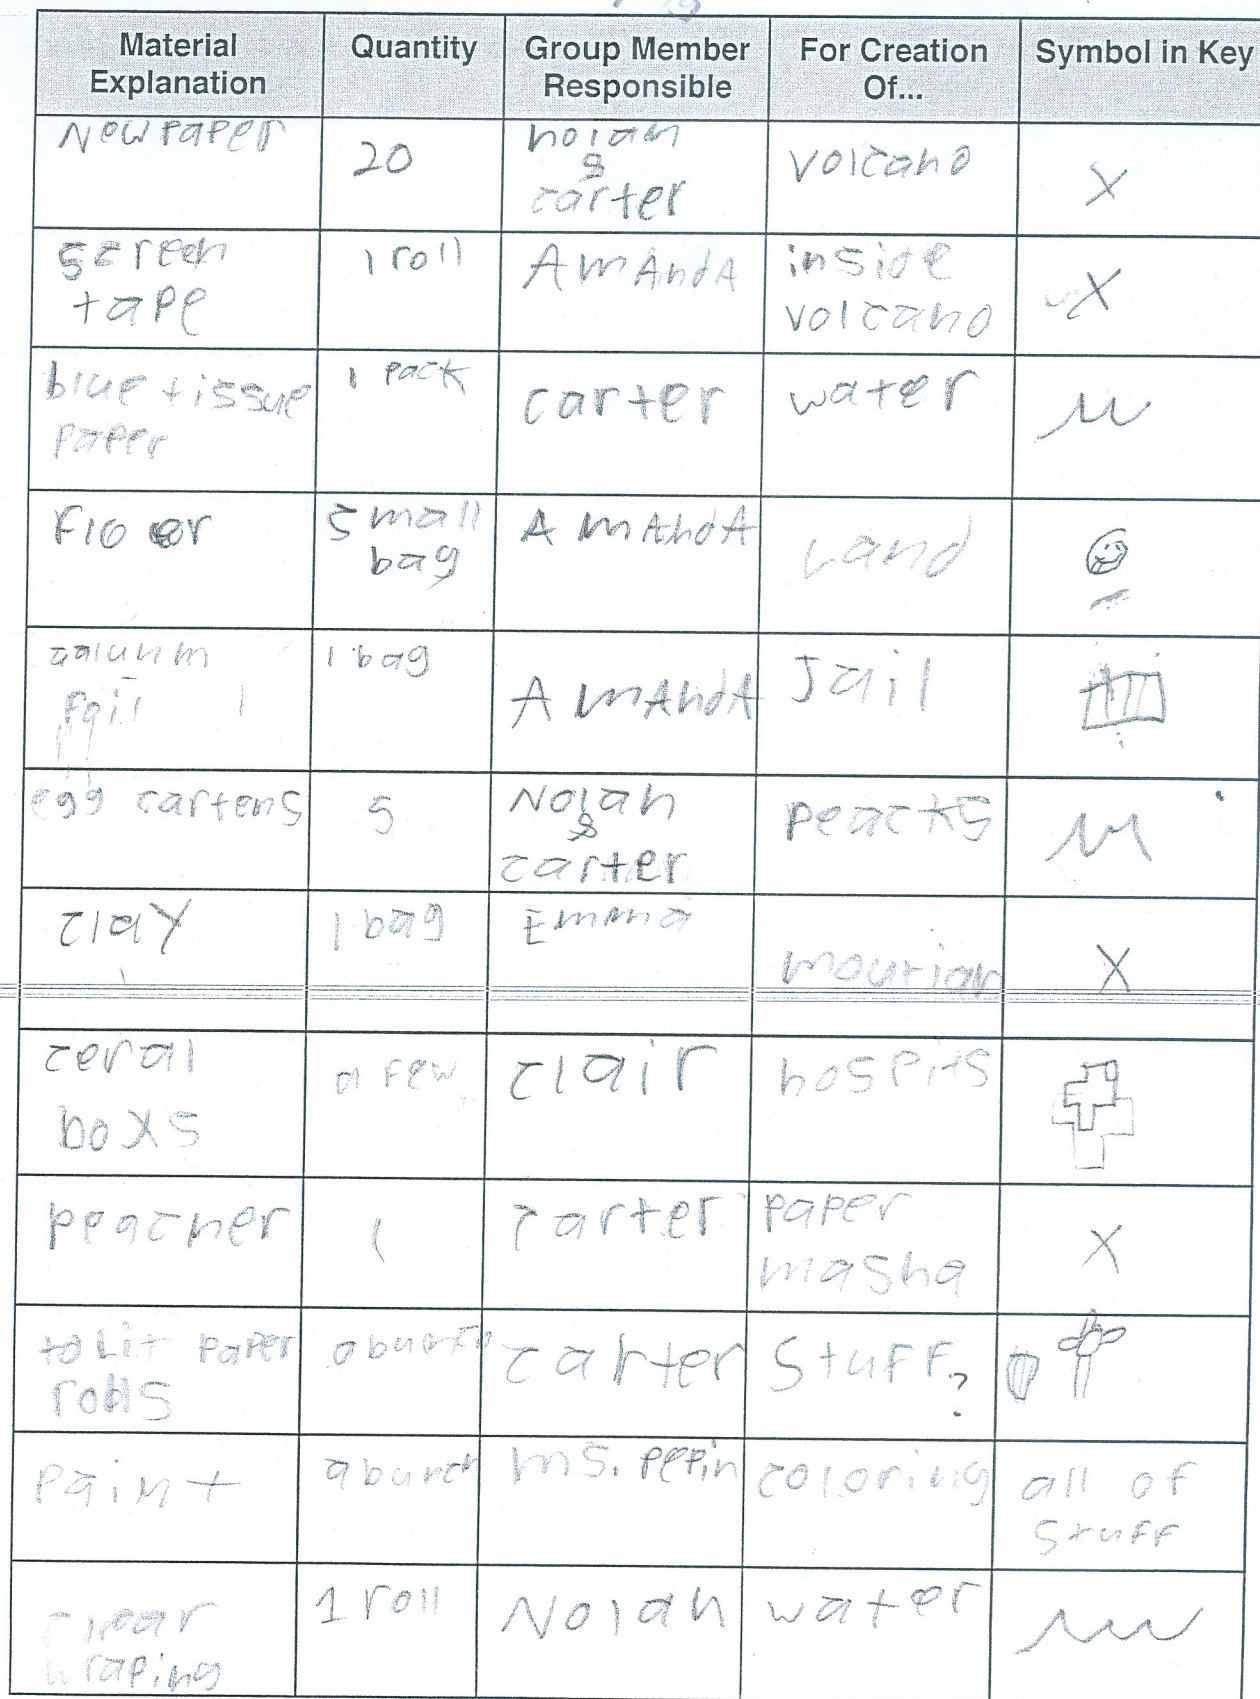 Material Explanation Quantity Group Member Responsible For Creation Of... Symbol in Key
Newpaper 20 nolan & carter volcano X
screen tape 1 roll AmAndA inside volcano X
blue tissue paper 1 pack carter water
Floer small bag AmAndA Land
aalunm foil 1 bag AmAndA Jail
egg cartens 5 Nolan & carter peacks
clay 1 bag Emma X
ceral boxs a few clair hospits
peacher 1 carter paper masha X
tolit paper rolls a bunch carter stuff?
paint a bunch ms. pepin coloring all of stuff
clear wraping 1 roll Nolan water